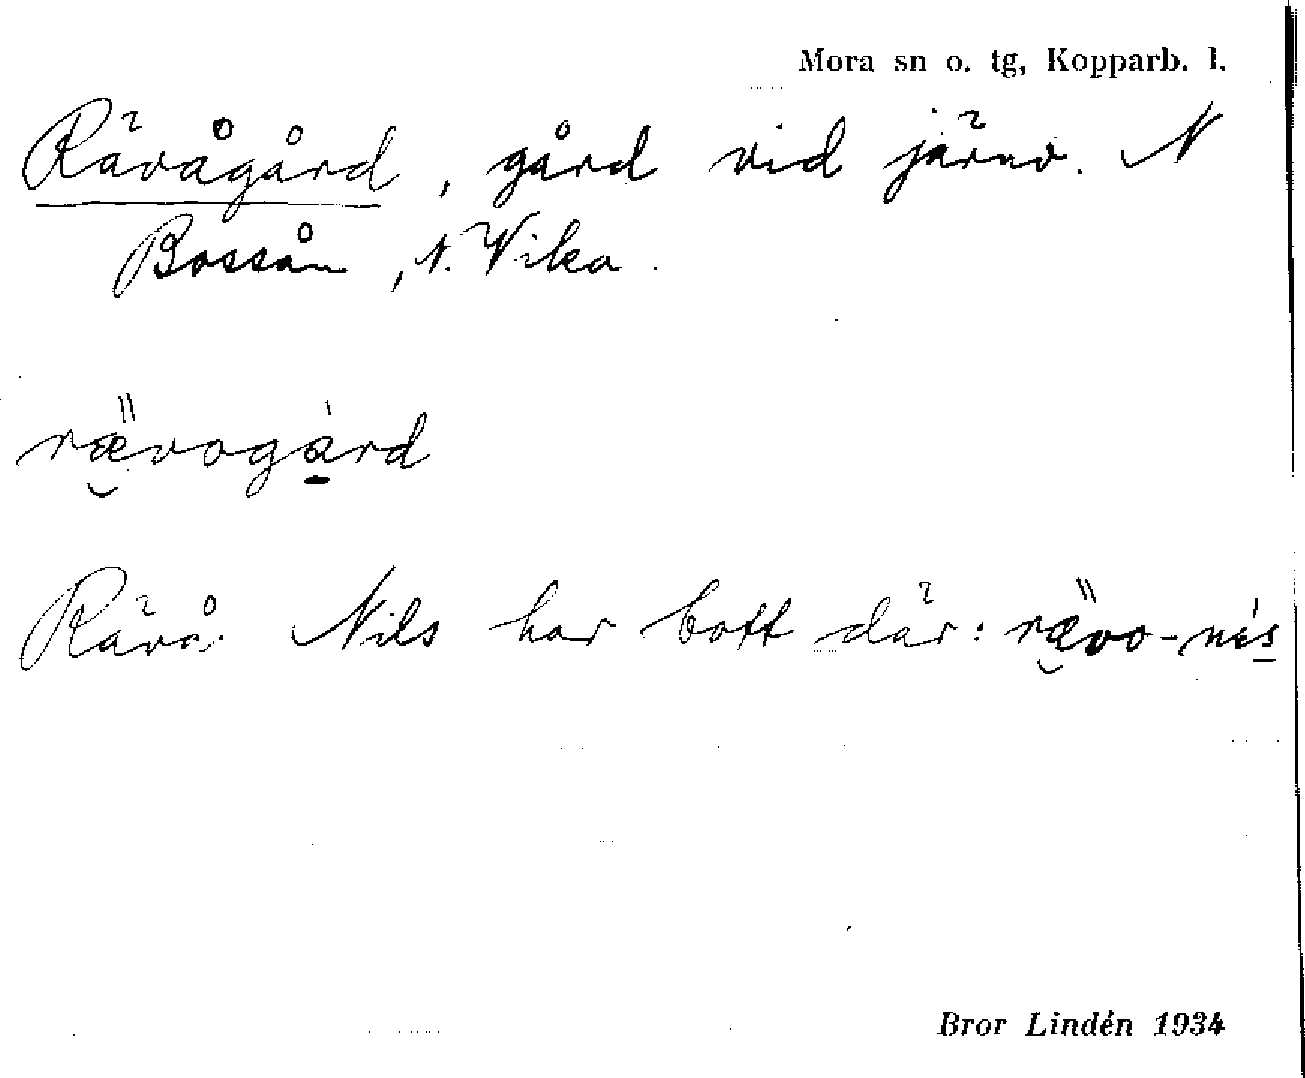 Mora sn o. tg, Kopparb. l.
Rävågård, gård vid järnv. N
Bossån, N. Vika.
rävogàrd
Rävå Nils har bott där: rävo-nís
Bror Lindén 1934